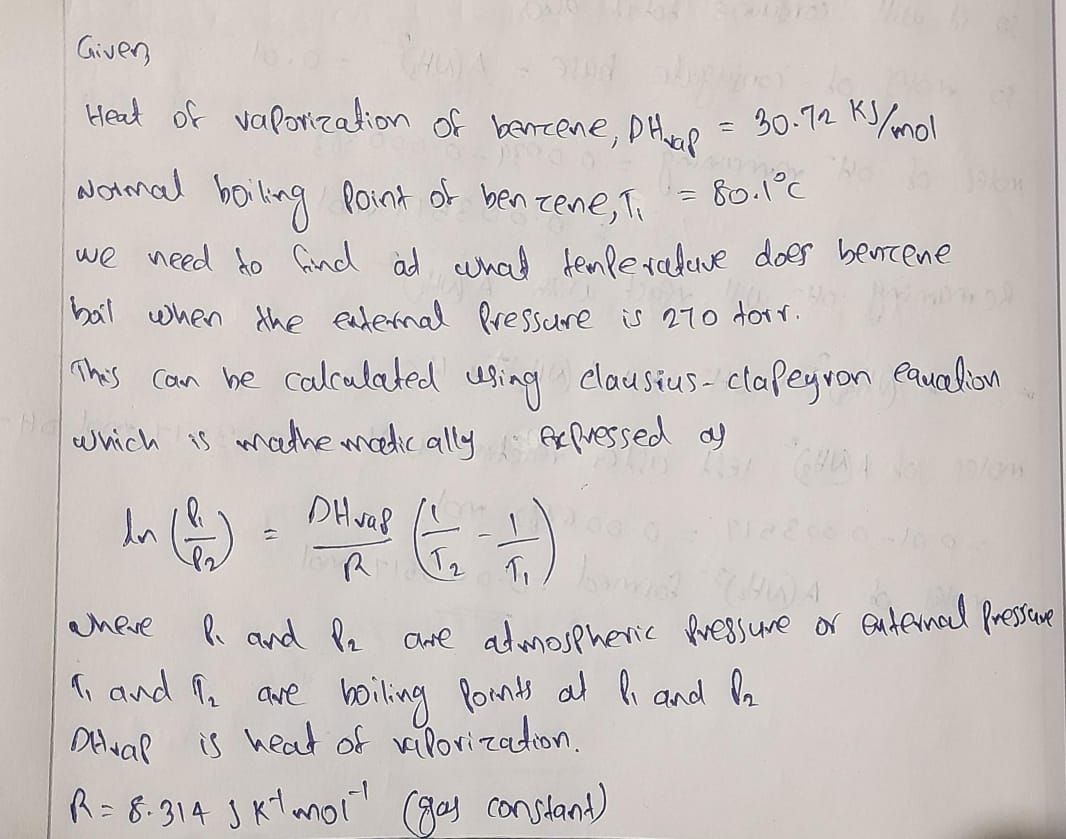 Given,
Heat of vaporization of benzene, DHvap = 30.72 KJ/mol
Normal boiling point of benzene, T₁ = 80.1°C
we need to find at what temperature does benzene
boil when the external pressure is 270 torr.
This can be calculated using clausius-clapeyron equation
which is mathematically expressed as
ln (P₁/P₂) = DHvap/R (1/T₂ - 1/T₁)
where P₁ and P₂ are atmospheric pressure or external pressure
T₁ and T₂ are boiling points at P₁ and P₂
DHvap is heat of vaporization.
R = 8.314 J K⁻¹ mol⁻¹ (gas constant)